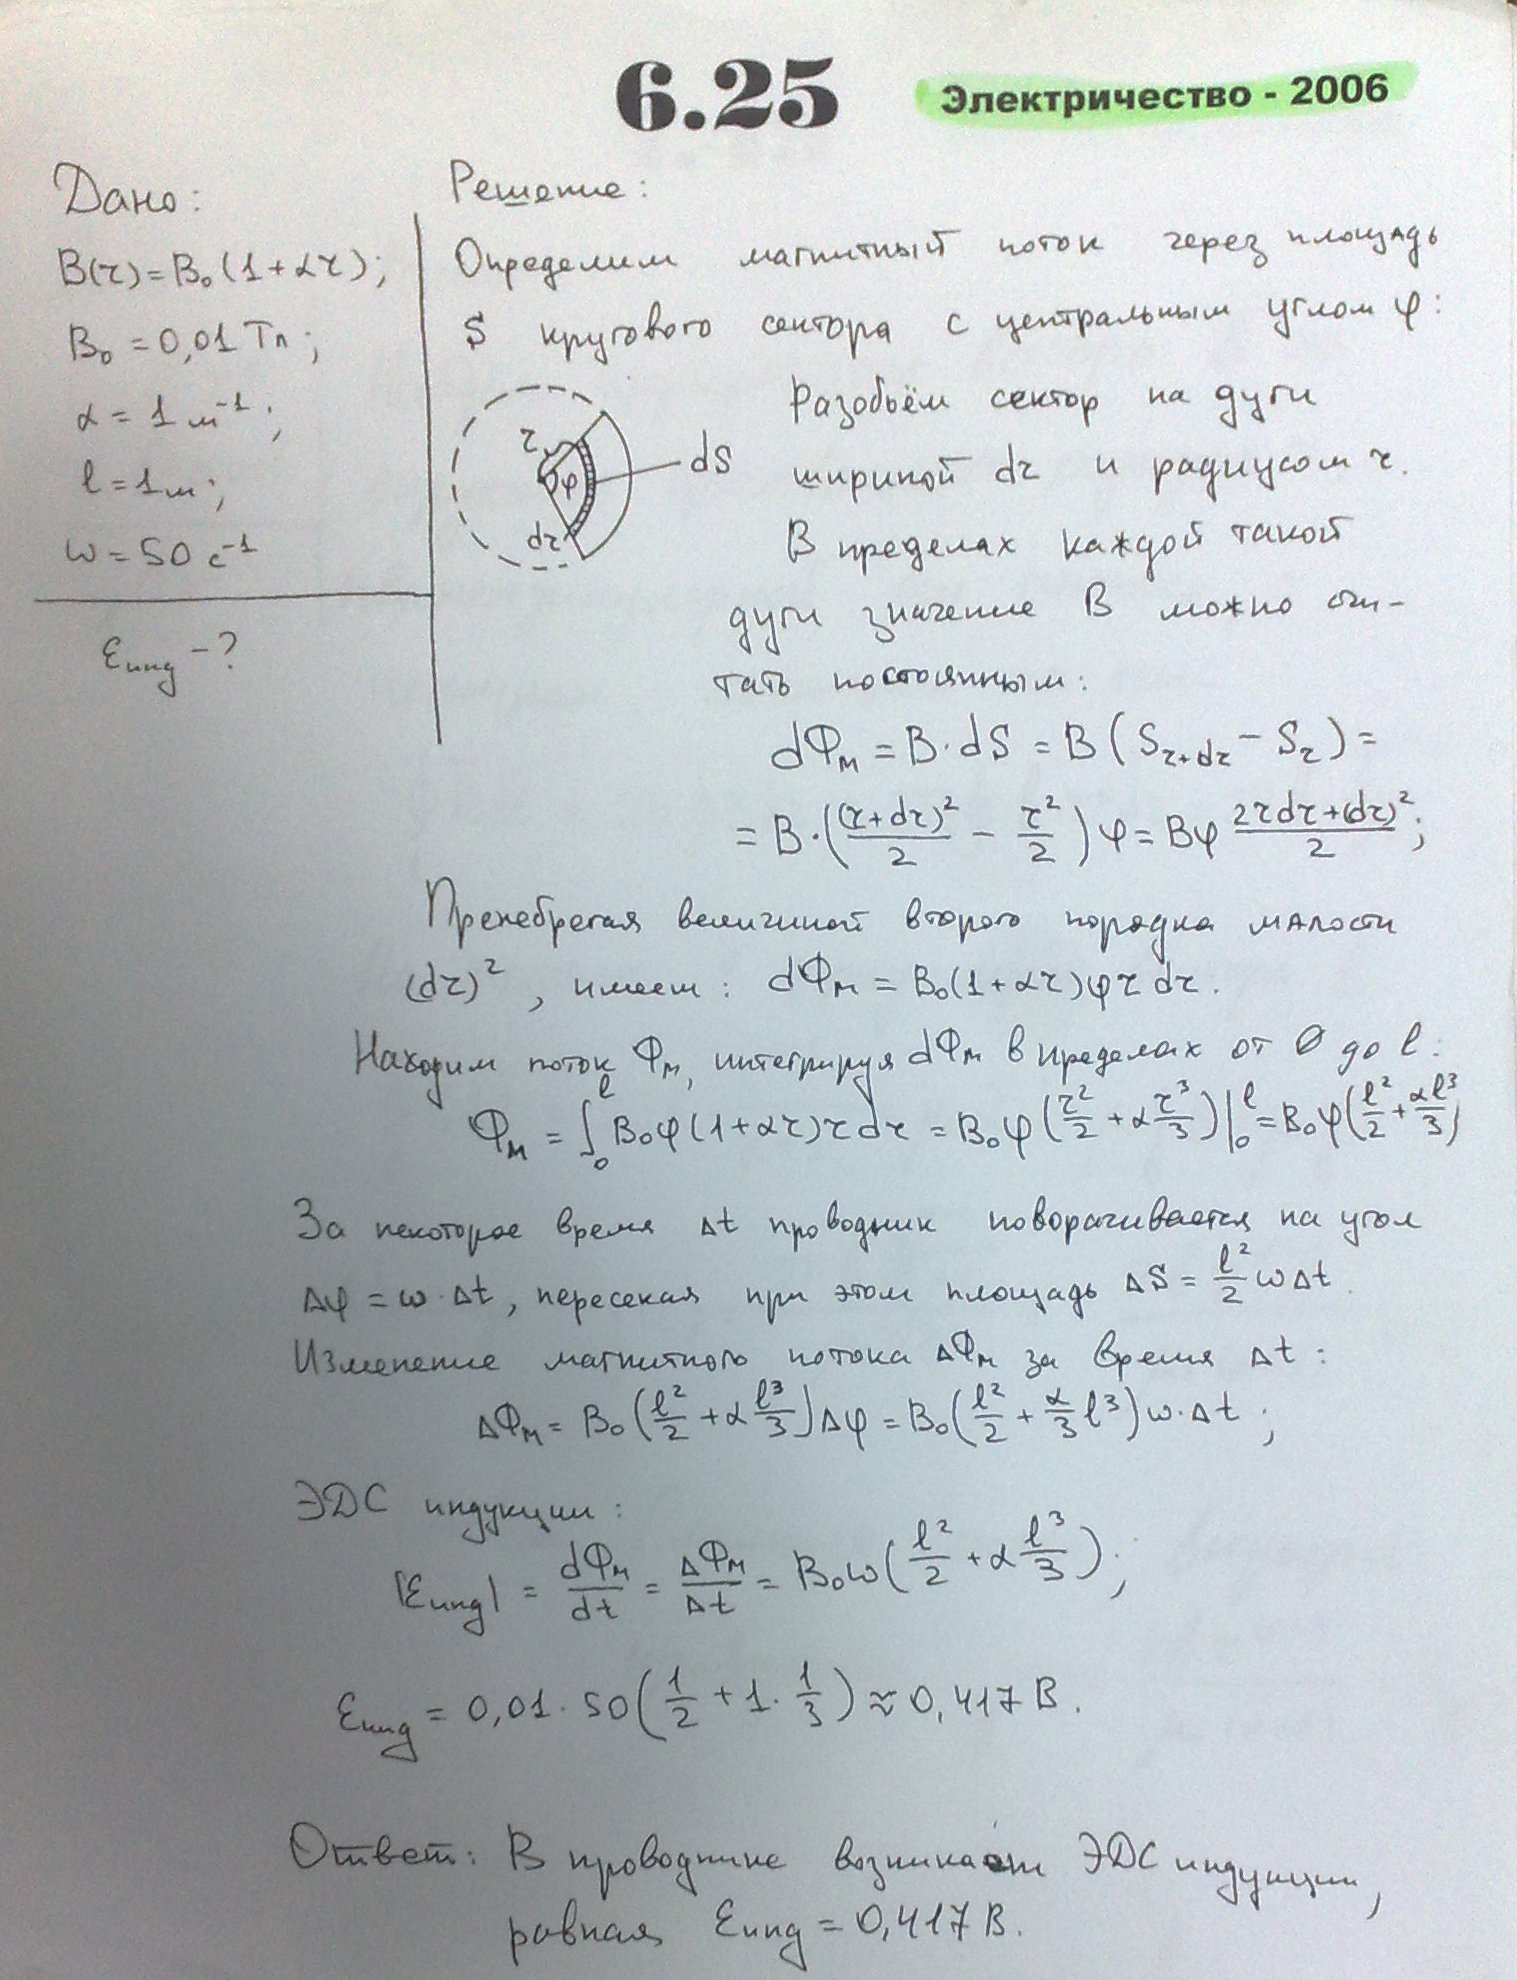 6.25
Электричество - 2006
Дано:
B(r) = B₀(1+αr);
B₀ = 0,01 Тл;
α = 1 м⁻¹;
l = 1м;
ω = 50 с⁻¹
εинд - ?
Решение:
Определим магнитный поток через площадь
S кругового сектора с центральным углом φ:
r
φ
dr
dS
Разобьём сектор на дуги
шириной dr и радиусом r.
В пределах каждой такой
дуги значение B можно счи-
тать постоянным:
dФм = B·dS = B(Sr+dr - Sr) =
= B·((r+dr)²/2 - r²/2)φ = Bφ (2rdr+(dr)²)/2;
Пренебрегая величиной второго порядка малости
(dr)², имеем: dФм = B₀(1+αr)φr dr.
Находим поток Фм, интегрируя dФм в пределах от 0 до l:
Фм = ∫₀ˡ B₀φ(1+αr)r dr = B₀φ(r²/2 + α r³/3)|₀ˡ = B₀φ(l²/2 + αl³/3)
За некоторое время Δt проводник поворачивается на угол
Δφ = ω·Δt, пересекая при этом площадь ΔS = l²/2 ωΔt.
Изменение магнитного потока ΔФм за время Δt:
ΔФм = B₀(l²/2 + α l³/3)Δφ = B₀(l²/2 + α/3 l³)ω·Δt;
ЭДС индукции:
|εинд| = dФм/dt = ΔФм/Δt = B₀ω(l²/2 + α l³/3);
εинд = 0,01·50(1/2 + 1·1/3) ≈ 0,417 В.
Ответ: В проводнике возникает ЭДС индукции,
равная εинд = 0,417 В.